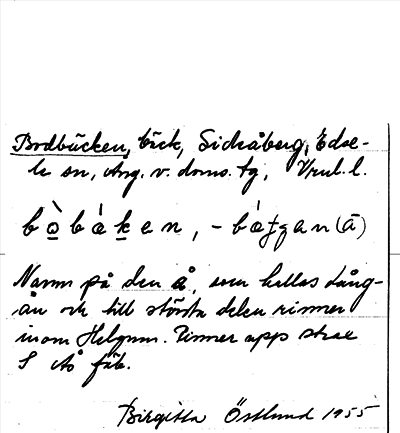 Bodbäcken, bäck, Sidråberg, Edse-
le sn, Ång. v. doms. tg, Vnl. l.
bo̱bäḵen, - bä
Namn på den å, som kallas Lång-
ån och till största delen rinner
inom Helgum. Rinner upp strax
S Ås fäb.
Birgitta Östlund 1955